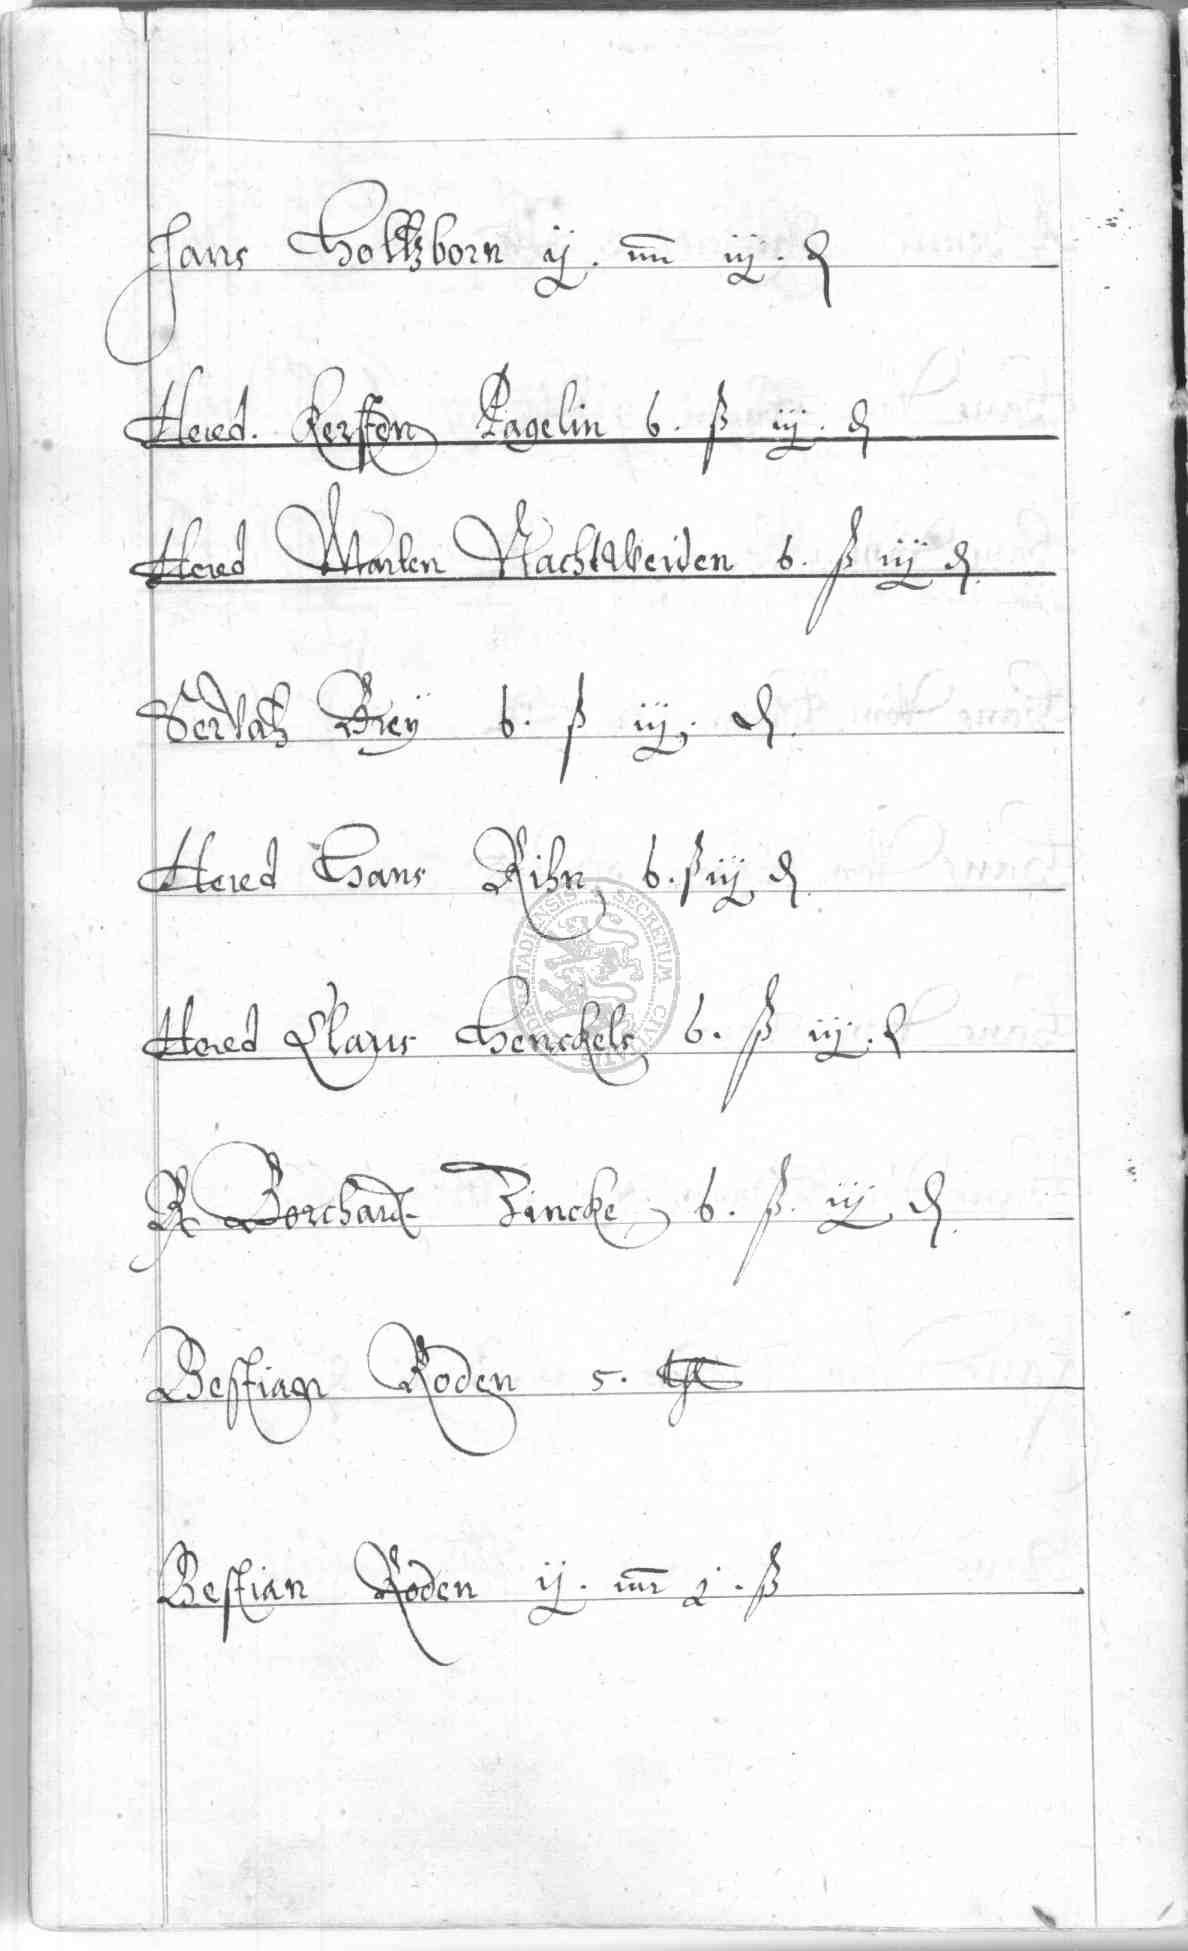 Hans Holtzborn ij. mr iij. ₰
Hered. Kersten Pagelin 6. ß iij. ₰
Hered Marten Nachtweiden 6. ß iij ₰
Servatz Brey 6. ß iij. ₰
Hered Hans Rihn 6. ß iij ₰
Hered Claus Henckels 6. ß iij. ₰
R Borchardt Zincke 6. ß. iij ₰
Bestian Roden 5.
Bestian Roden ij. mr j. ß
SECRETUM CIVITATIS